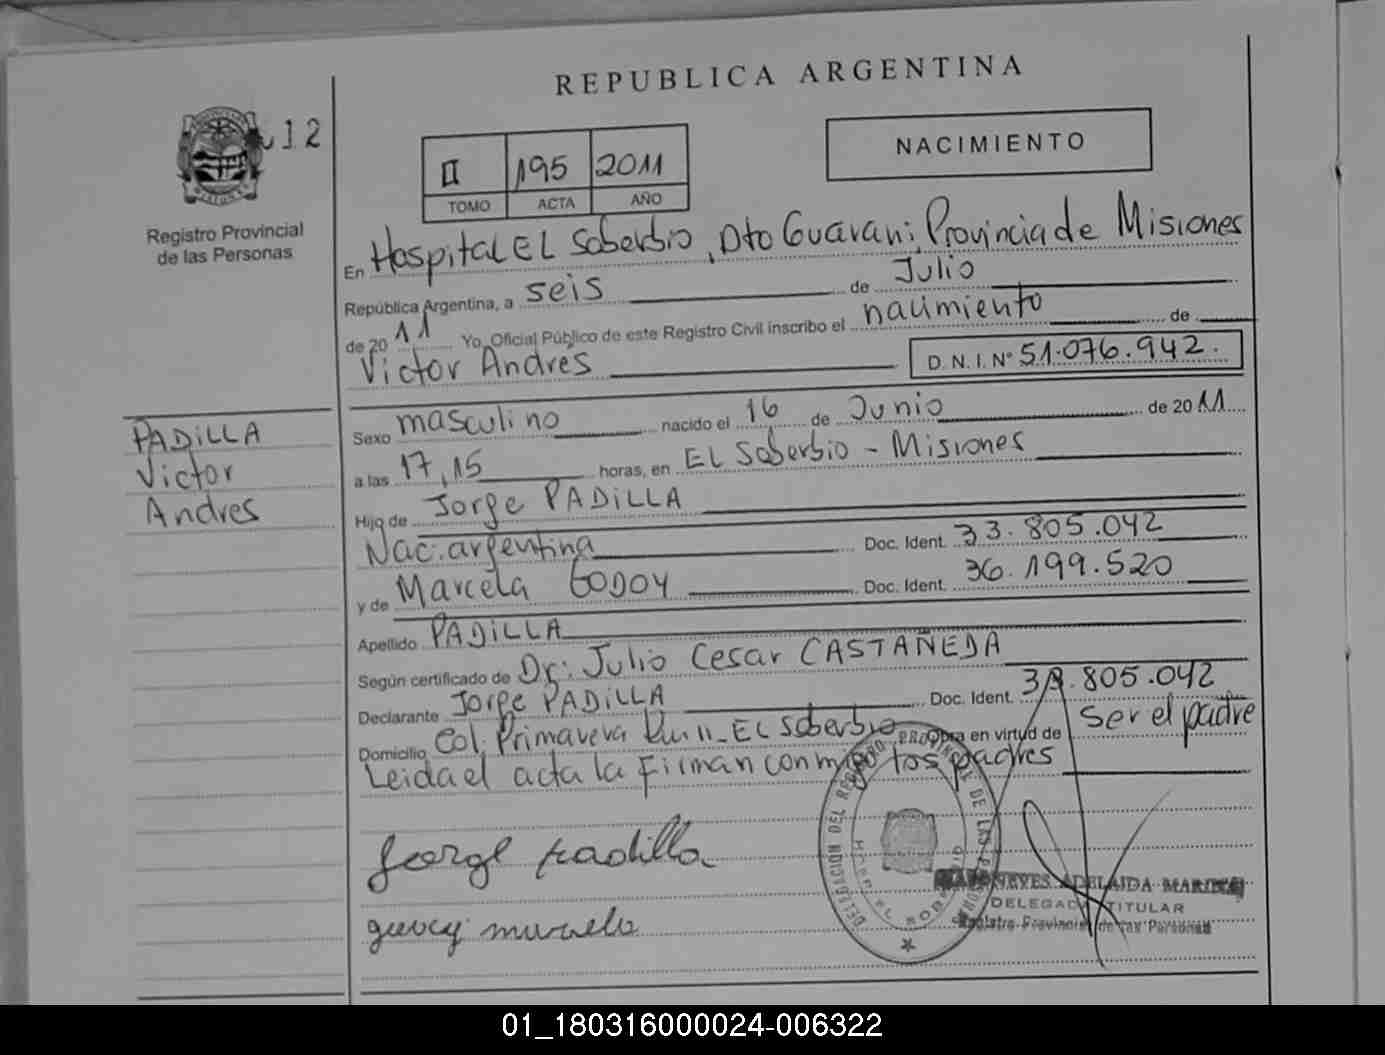 REPUBLICA ARGENTINA
012
II 195 2011
TOMO ACTA AÑO
NACIMIENTO
Registro Provincial
de las Personas
En Hospital EL Soberbio, Dto Guarani, Provincia de Misiones
República Argentina, a seis de Julio
de 2011 Yo, Oficial Público de este Registro Civil inscribo el nacimiento de
Victor Andres D.N.I. Nº 51.076.942.
PADILLA
Victor
Andres
Sexo masculino nacido el 16 de Junio de 2011
a las 17,15 horas, en EL Soberbio - Misiones
Hijo de Jorge PADILLA
Nac. argentina Doc. Ident. 33.805.042
y de Marcela GODOY Doc. Ident. 36.199.520
Apellido PADILLA
Según certificado de Dr: Julio Cesar CASTAÑEDA
Declarante Jorge PADILLA Doc. Ident. 33.805.042
Domicilio Col. Primavera EL Soberbio Obra en virtud de Ser el padre
Leida el acta la Firman conmigo los padres
Jorge Padilla
DELEGACION DEL REGISTRO PROVINCIAL DE LAS PERSONAS
NEVES ADELAIDA
DELEGADA TITULAR
Registro Provincial de las Personas
01_180316000024-006322